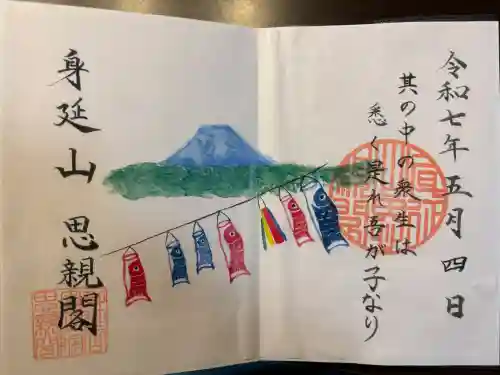 令和七年五月四日
其の中の衆生は
悉く是れ吾が子なり
身延山 思親閣